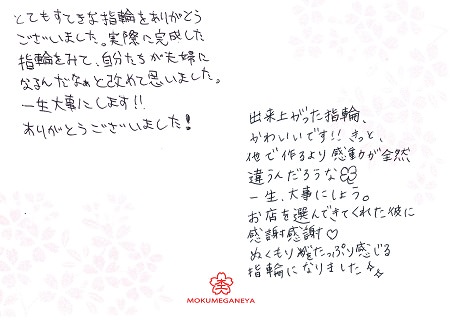 とてもすてきな指輪をありがとう
ございました。実際に完成した
指輪をみて、自分たちが夫婦に
なるんだなぁと改めて思いました。
一生大事にします!!
ありがとうございました!
出来上がった指輪、
かわいいです!!きっと、
他で作るより感動が全然
違うんだろうな
一生、大事にしよう。
お店を選んできてくれた彼に
感謝感謝♡
ぬくもりがたっぷり感じる
指輪になりました
MOKUMEGANEYA